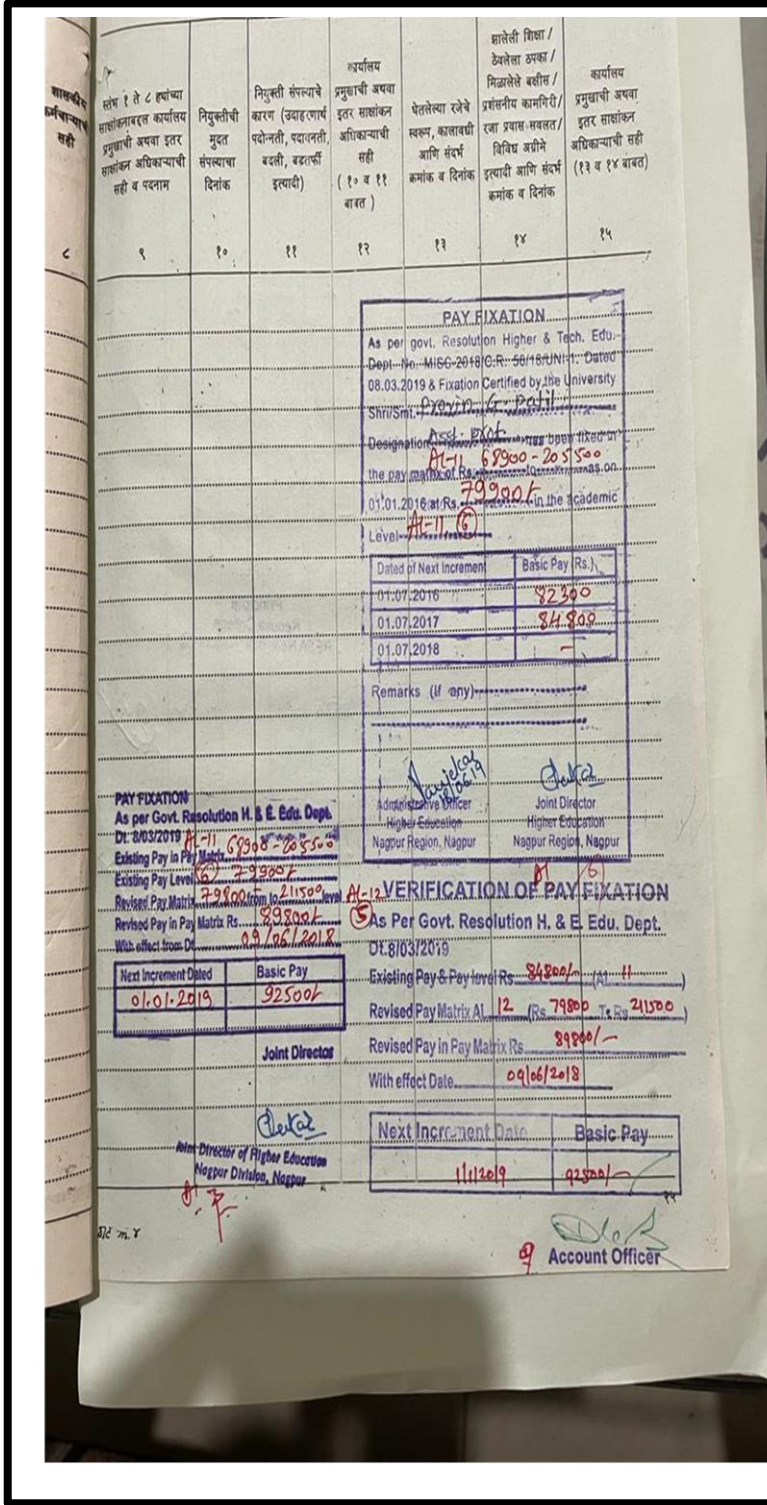 शासकीय
कर्मचाऱ्याची
सही
८
स्तंभ १ ते ८ ह्यांच्या
साक्षांकनाबद्दल कार्यालय
प्रमुखाची अथवा इतर
साक्षांकन अधिकाऱ्याची
सही व पदनाम
९
नियुक्तीची
मुदत
संपल्याचा
दिनांक
१०
नियुक्ती संपल्याचे
कारण (उदाहरणार्थ
पदोन्नती, पदावनती,
बदली, बडतर्फी
इत्यादी)
११
कार्यालय
प्रमुखाची अथवा
इतर साक्षांकन
अधिकाऱ्याची
सही
( १० व ११
बाबत )
१२
घेतलेल्या रजेचे
स्वरूप, कालावधी
आणि संदर्भ
क्रमांक व दिनांक
१३
झालेली शिक्षा /
ठेवलेला ठपका /
मिळालेले बक्षीस /
प्रशंसनीय कामगिरी/
रजा प्रवास सवलत/
विविध अग्रीमे
इत्यादी आणि संदर्भ
क्रमांक व दिनांक
१४
कार्यालय
प्रमुखाची अथवा
इतर साक्षांकन
अधिकाऱ्याची सही
(१३ व १४ बाबत)
१५
PAY FIXATION
As per govt. Resolution Higher & Tech. Edu.
Dept. No. MISC-2018/C.R. 56/18/UNI-1. Dated
08.03.2019 & Fixation Certified by the University
Shri/Smt. Pravin G. Patil
Designation Asst. prof. has been fixed in
AL-11 68900-205500
the pay matrix of Rs. to as on
01.01.2016 at Rs. 79900/- in the academic
Level AL-11 (6)
Dated of Next Increment Basic Pay (Rs.)
01.07.2016 82300
01.07.2017 84800
01.07.2018 -
Remarks (If any)
18/06/19
Administrative Officer
Higher Education
Nagpur Region, Nagpur
Joint Director
Higher Education
Nagpur Region, Nagpur
PAY FIXATION
As per Govt. Resolution H. & E. Edu. Dept.
Dt. 8/03/2019 AL-11 68900-205500
Existing Pay in Pay Matrix
Existing Pay Level (6) 79900/-
Revised Pay Matrix 79800 from to 211500 level AL-12
Revised Pay in Pay Matrix Rs. 89800/- (5)
With effect from Dt. 09/06/2018
Next Increment Dated Basic Pay
01.01.2019 92500/-
Joint Director
Joint Director of Higher Education
Nagpur Division, Nagpur
VERIFICATION OF PAY FIXATION
As Per Govt. Resolution H. & E. Edu. Dept.
Dt.8/03/2019
Existing Pay & Pay level Rs 84800/- (Al 11 )
Revised Pay Matrix AL 12 (Rs 79800 To Rs 211500 )
Revised Pay in Pay Matrix Rs 89800/-
With effect Date 09/06/2018
Next Increment Date Basic Pay
1/1/2019 92500/-
१५
Account Officer